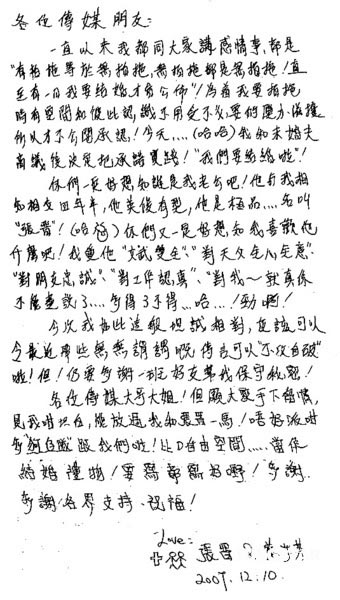 各位傳媒朋友:
一直以來我都同大家講感情事，都是
"有拍拖等於無拍拖，無拍拖都是無拍拖！直
至有一日我要結婚才會公佈"！為着我要拍拖
時有空間知彼此認識，不用受不必要的壓力
所以才不公開承認！今天....(哈哈)我和未婚夫
商議後決定把承諾實踐！"我們要結婚啦"！
你們一定好想知誰是我老公吧！他與我相
知相交四年半，他英俊有型，他是極品....名叫
"張晉"！(哈哈)你們又一定好想知我喜歡他
什麼呢！我重他"文武雙全"、"對天父全心全意"、
"對朋友忠誠"、"對工作認真"、"對我～就真係
不能盡說了....多得了不得...哈...！勁啊！
今次我在此這般坦誠相對，應該可以
令最近那些無無謂謂嘅傳言可以"不攻自破"
啦！但！仍要多謝一班好友幫我保守秘密！
各位傳媒大哥大姐！但願大家手下留情，
見我咁坦白，放過我和張晉一馬！唔好派咁
多"狗仔隊"跟我們啦！比D自由空間.....當係
結婚禮物！要寫都寫好嘢！多謝
多謝各界支持、祝福！
Love:
張晉 & 蔡少芬
2007.12.10.